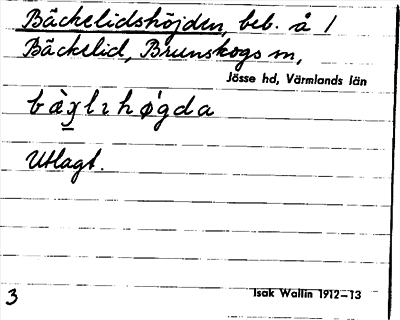 Bäckelidshöjden, beb. å 1
Bäckelid, Brunskogs sn,
Jösse hd, Värmlands län
Utlagt.
3
Isak Wallin 1912–13